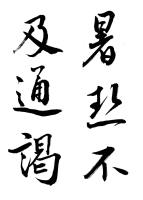 暑热不
及通謁